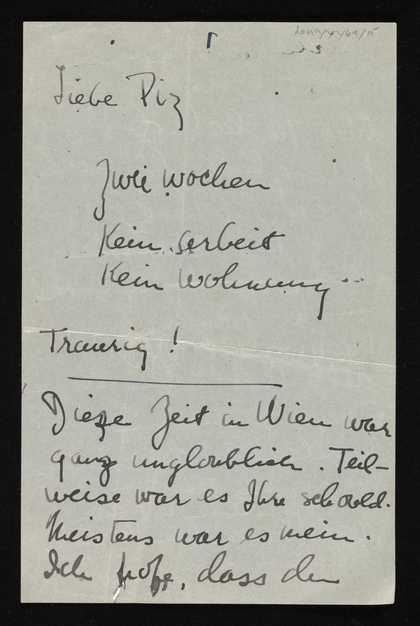 Liebe Piz
Zwei wochen
Kein arbeit
Kein Wohnung
Traurig!
Dieze Zeit in Wien war
ganz unglaublich. Teil-
weise war es Ihre schould.
Meistens war es mein.
Ich hofe, dass du